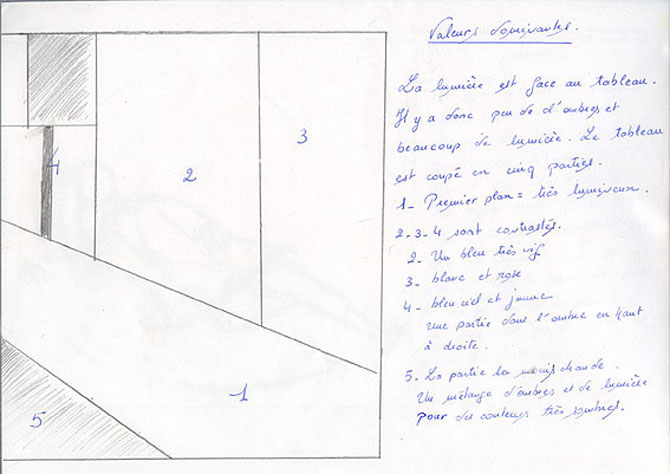 Valeurs dominantes.
La lumière est face au tableau.
Il y a donc peu de d'ombres et
beaucoup de lumière. Le tableau
est coupé en cinq parties.
1_ Premier plan = très lumineux.
2_3_4 sont contrastés.
2_ Un bleu très vif
3_ blanc et rose
4_ bleu ciel et jaune
une partie dans l'ombre en haut
à droite.
5_ La partie la moins chaude.
Un mélange d'ombres et de lumière
pour des couleurs très sombres.
4
3
2
1
5